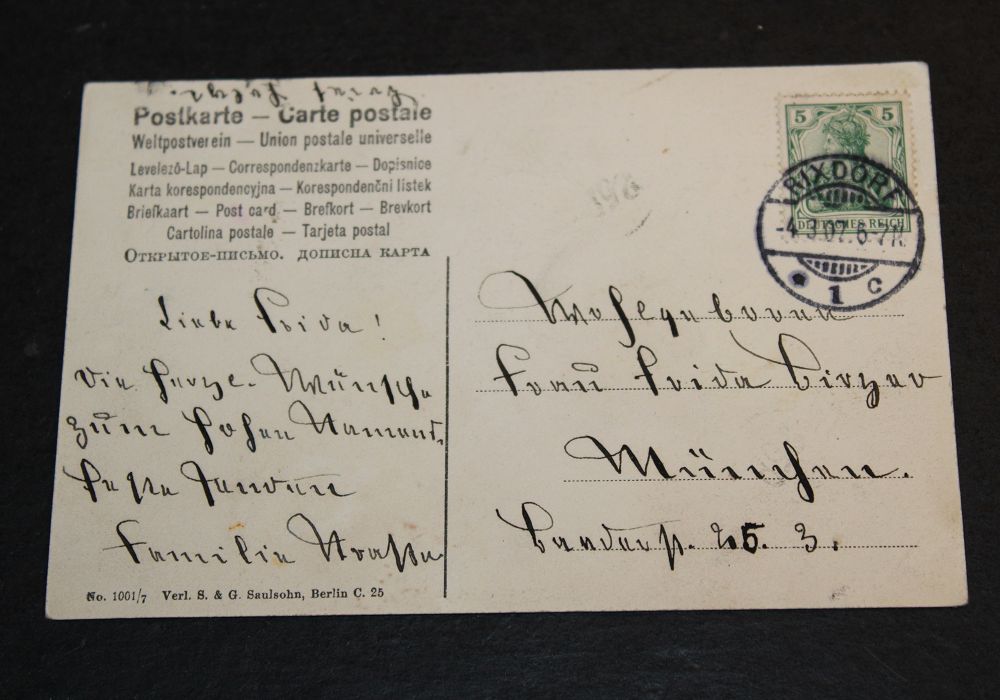 Postkarte — Carte postale
Weltpostverein — Union postale universelle
Levelező-Lap — Correspondenzkarte — Dopisnice
Karta korespondencyjna — Korespondenční listek
Briefkaart — Post card — Brefkort — Brevkort
Cartolina postale — Tarjeta postal
Открытое-письмо. дописна карта
5 5
DEUTSCHES REICH
RIXDORF
-4.3.07. 6-7N.
* 1 c
Liebe Frida!
Die herzl. Wünsche
zum hohen Namens-
feste senden
Familie
Wohlgeboren
Frau Frida
München.
25. 3.
No. 1001/7 Verl. S. & G. Saulsohn, Berlin C. 25